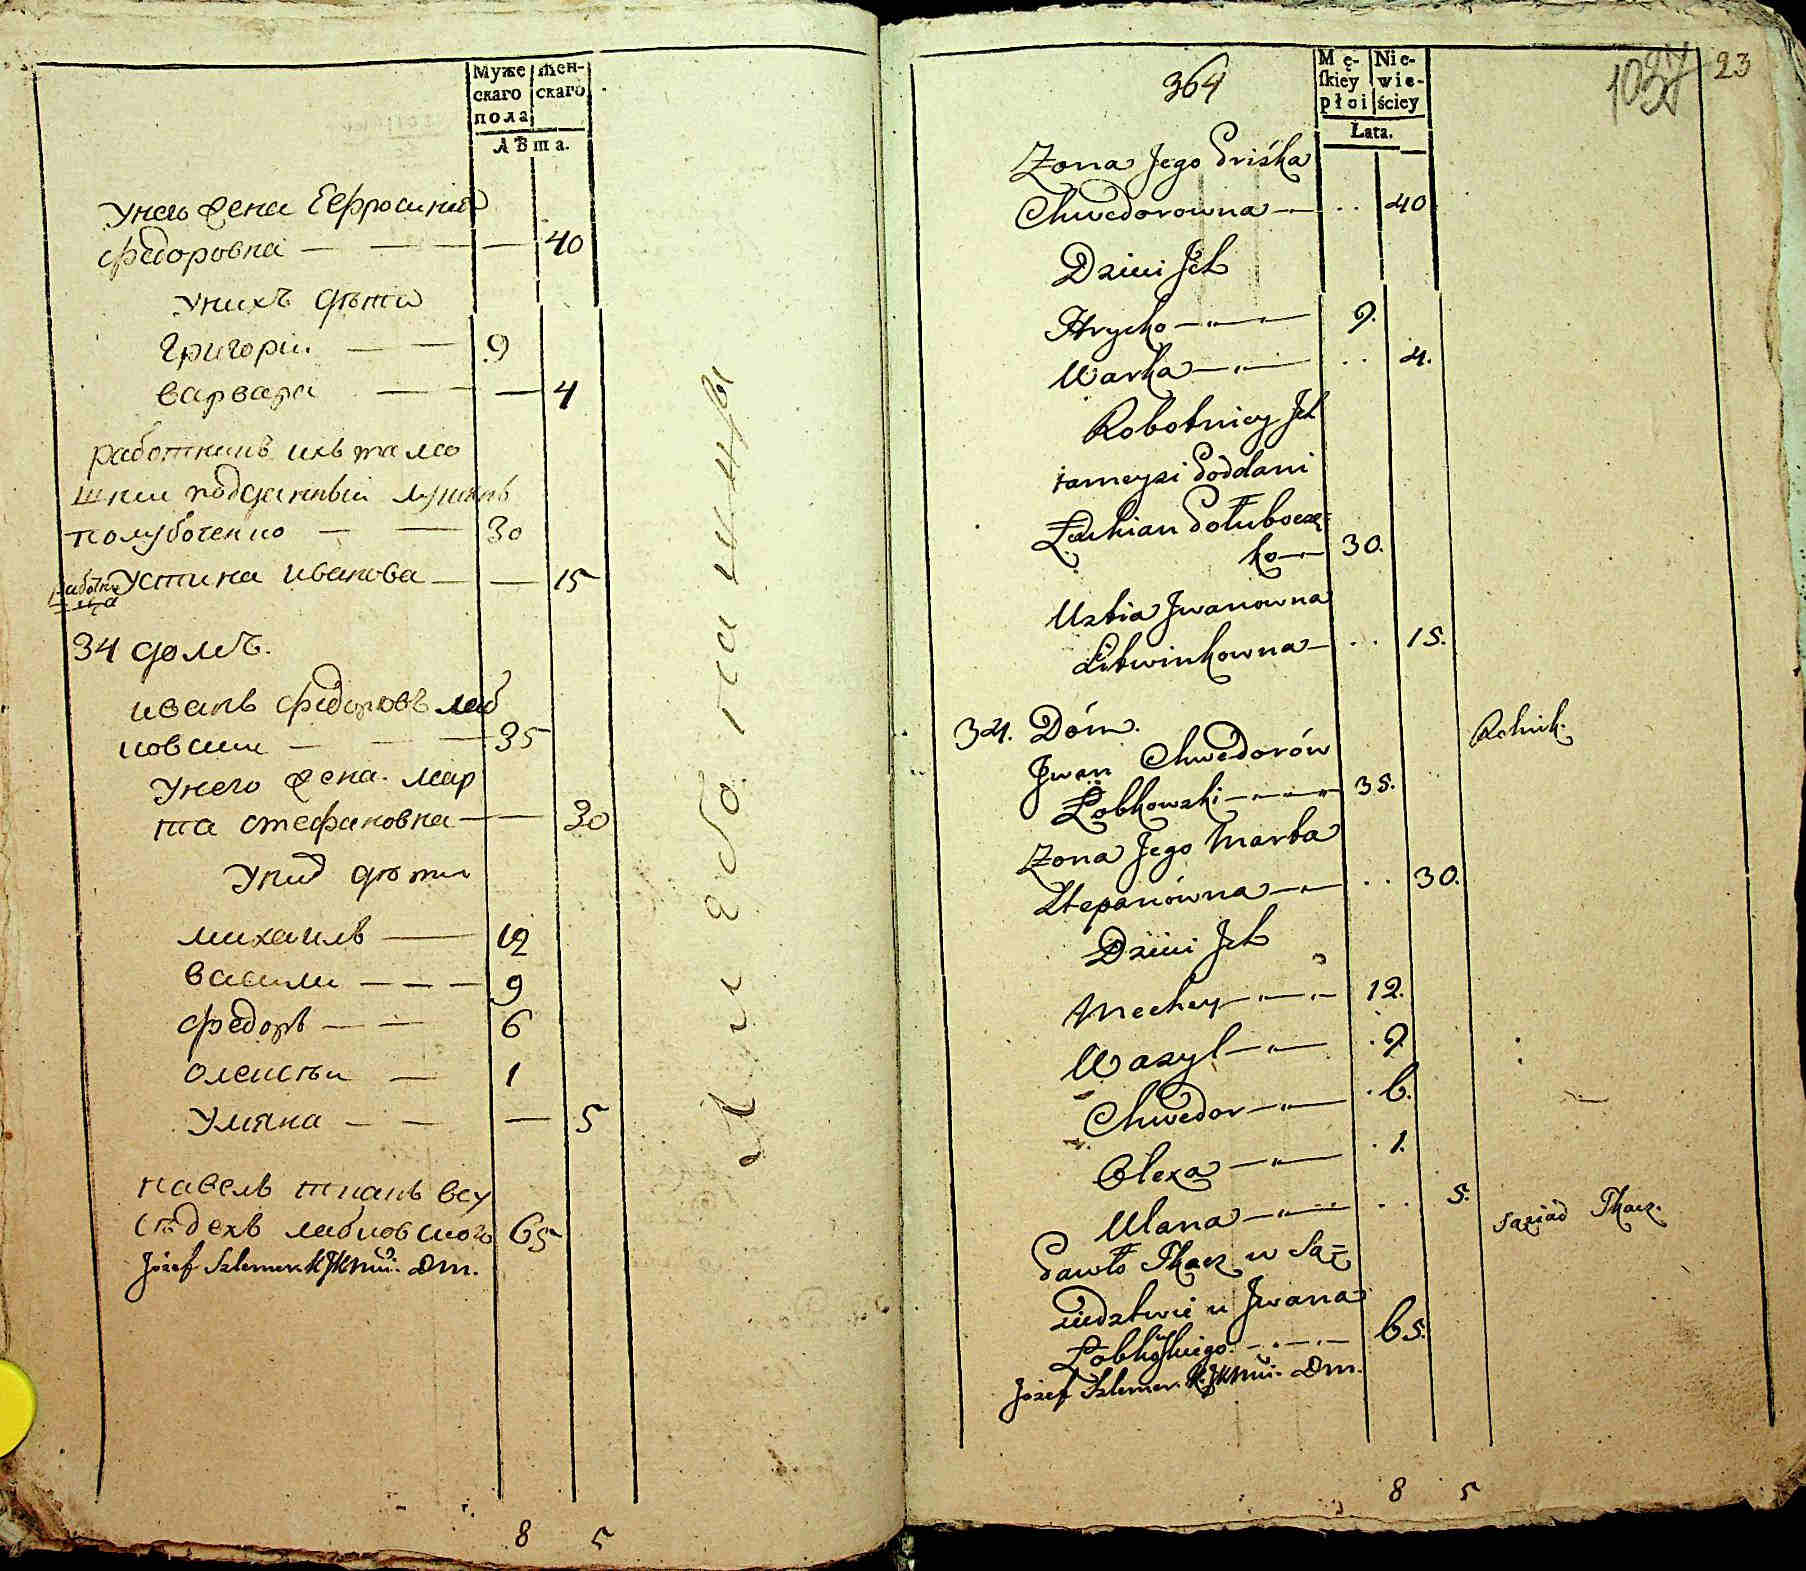 Муже
скаго
пола
Жен-
скаго
Лѣта.
Унего жена Еефросиния
федоровна — — — 40
Унихъ дѣти
Григорiи — — 9
варвара — — 4
работникъ ихъ тамо
шнии подданныи лукянъ
полубоченко — — 30
работни
ца
Устина иванова — — 15
34 домъ.
иванъ федоровъ лаб
ковски — — — 35
Унего жена мар
та стефановна — — 30
Унихъ дѣти
михаилъ — 12
васили — — — 9
федоръ — — 6
олексѣи — 1
Уляна — — — 5
павелъ ткачъ всу
сѣдехъ лабковског 65
Józef Szlemer
8 5
364
Mę-
skiey
płci
Nie-
wie-
ściey
Lata.
1037
23
Zona Jego Priśka
Chwedorowna — .. 40
Dzieci Jch
Hrycko — 9.
Warka — .. 4.
Robotnicy Jch
tameysi Poddani
Łukian Połubocze=
ko — 30.
Ustia Jwanowna
Litwinkowna — .. 15.
34. Dóm.
Rolnik.
Jwan Chwedorów
Łobkowski — 35.
Zona Jego Marta
Stepanówna — .. 30.
Dzieci Jch
Mechey — 12.
Wasyl — . 9
Chwedor — . 6.
Olexa — . 1.
Ulana — .. 5.
Pawło Tkacz w Są=
siedztwie u Jwana
Łobkowskiego — 65.
Sąsiad Tkacz.
Józef Szlemer
8 5